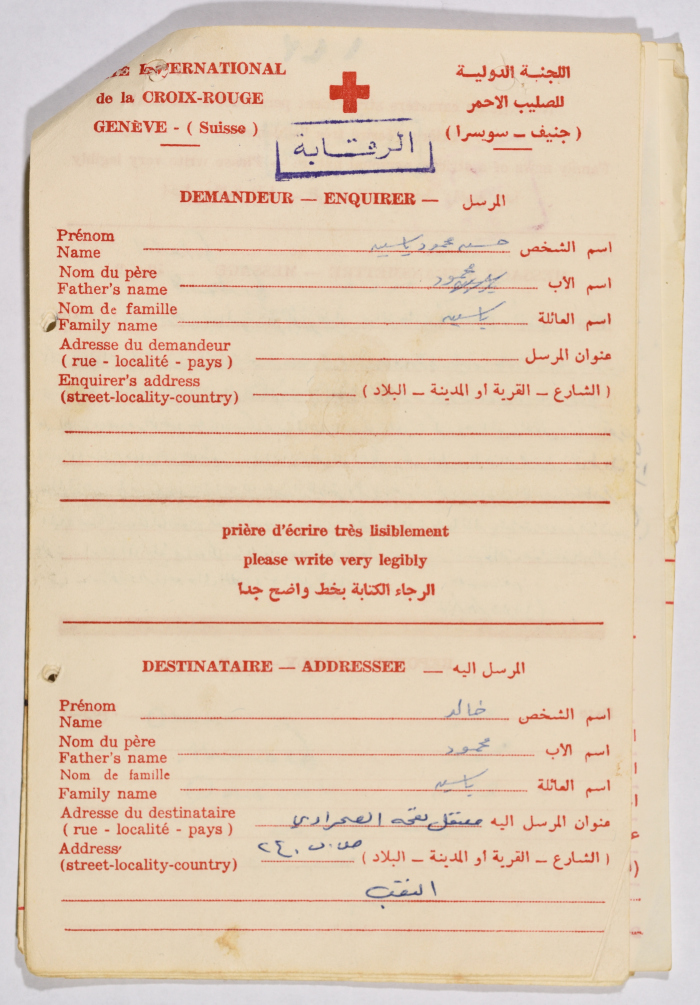 INTERNATIONAL
de la CROIX-ROUGE
GENÈVE - ( Suisse )
اللجنة الدولية
للصليب الاحمر
( جنيف – سويسرا )
الرقابة
DEMANDEUR — ENQUIRER — المرسل
Prénom
Name
حسين محمود ياسين
اسم الشخص
Nom du père
Father's name
محمود
اسم الأب
Nom de famille
Family name
ياسين
اسم العائلة
Adresse du demandeur
( rue - localité - pays )
عنوان المرسل
Enquirer's address
(street-locality-country)
( الشارع – القرية أو المدينة – البلاد )
prière d'écrire très lisiblement
please write very legibly
الرجاء الكتابة بخط واضح جداً
DESTINATAIRE — ADDRESSEE — المرسل اليه
Prénom
Name
خالد
اسم الشخص
Nom du père
Father's name
محمود
اسم الأب
Nom de famille
Family name
ياسين
اسم العائلة
Adresse du destinataire
( rue - localité - pays )
معتقل الصحراوي
عنوان المرسل اليه
Address
(street-locality-country)
ص.ب ٢٤٠
( الشارع – القرية أو المدينة – البلاد )
النقب